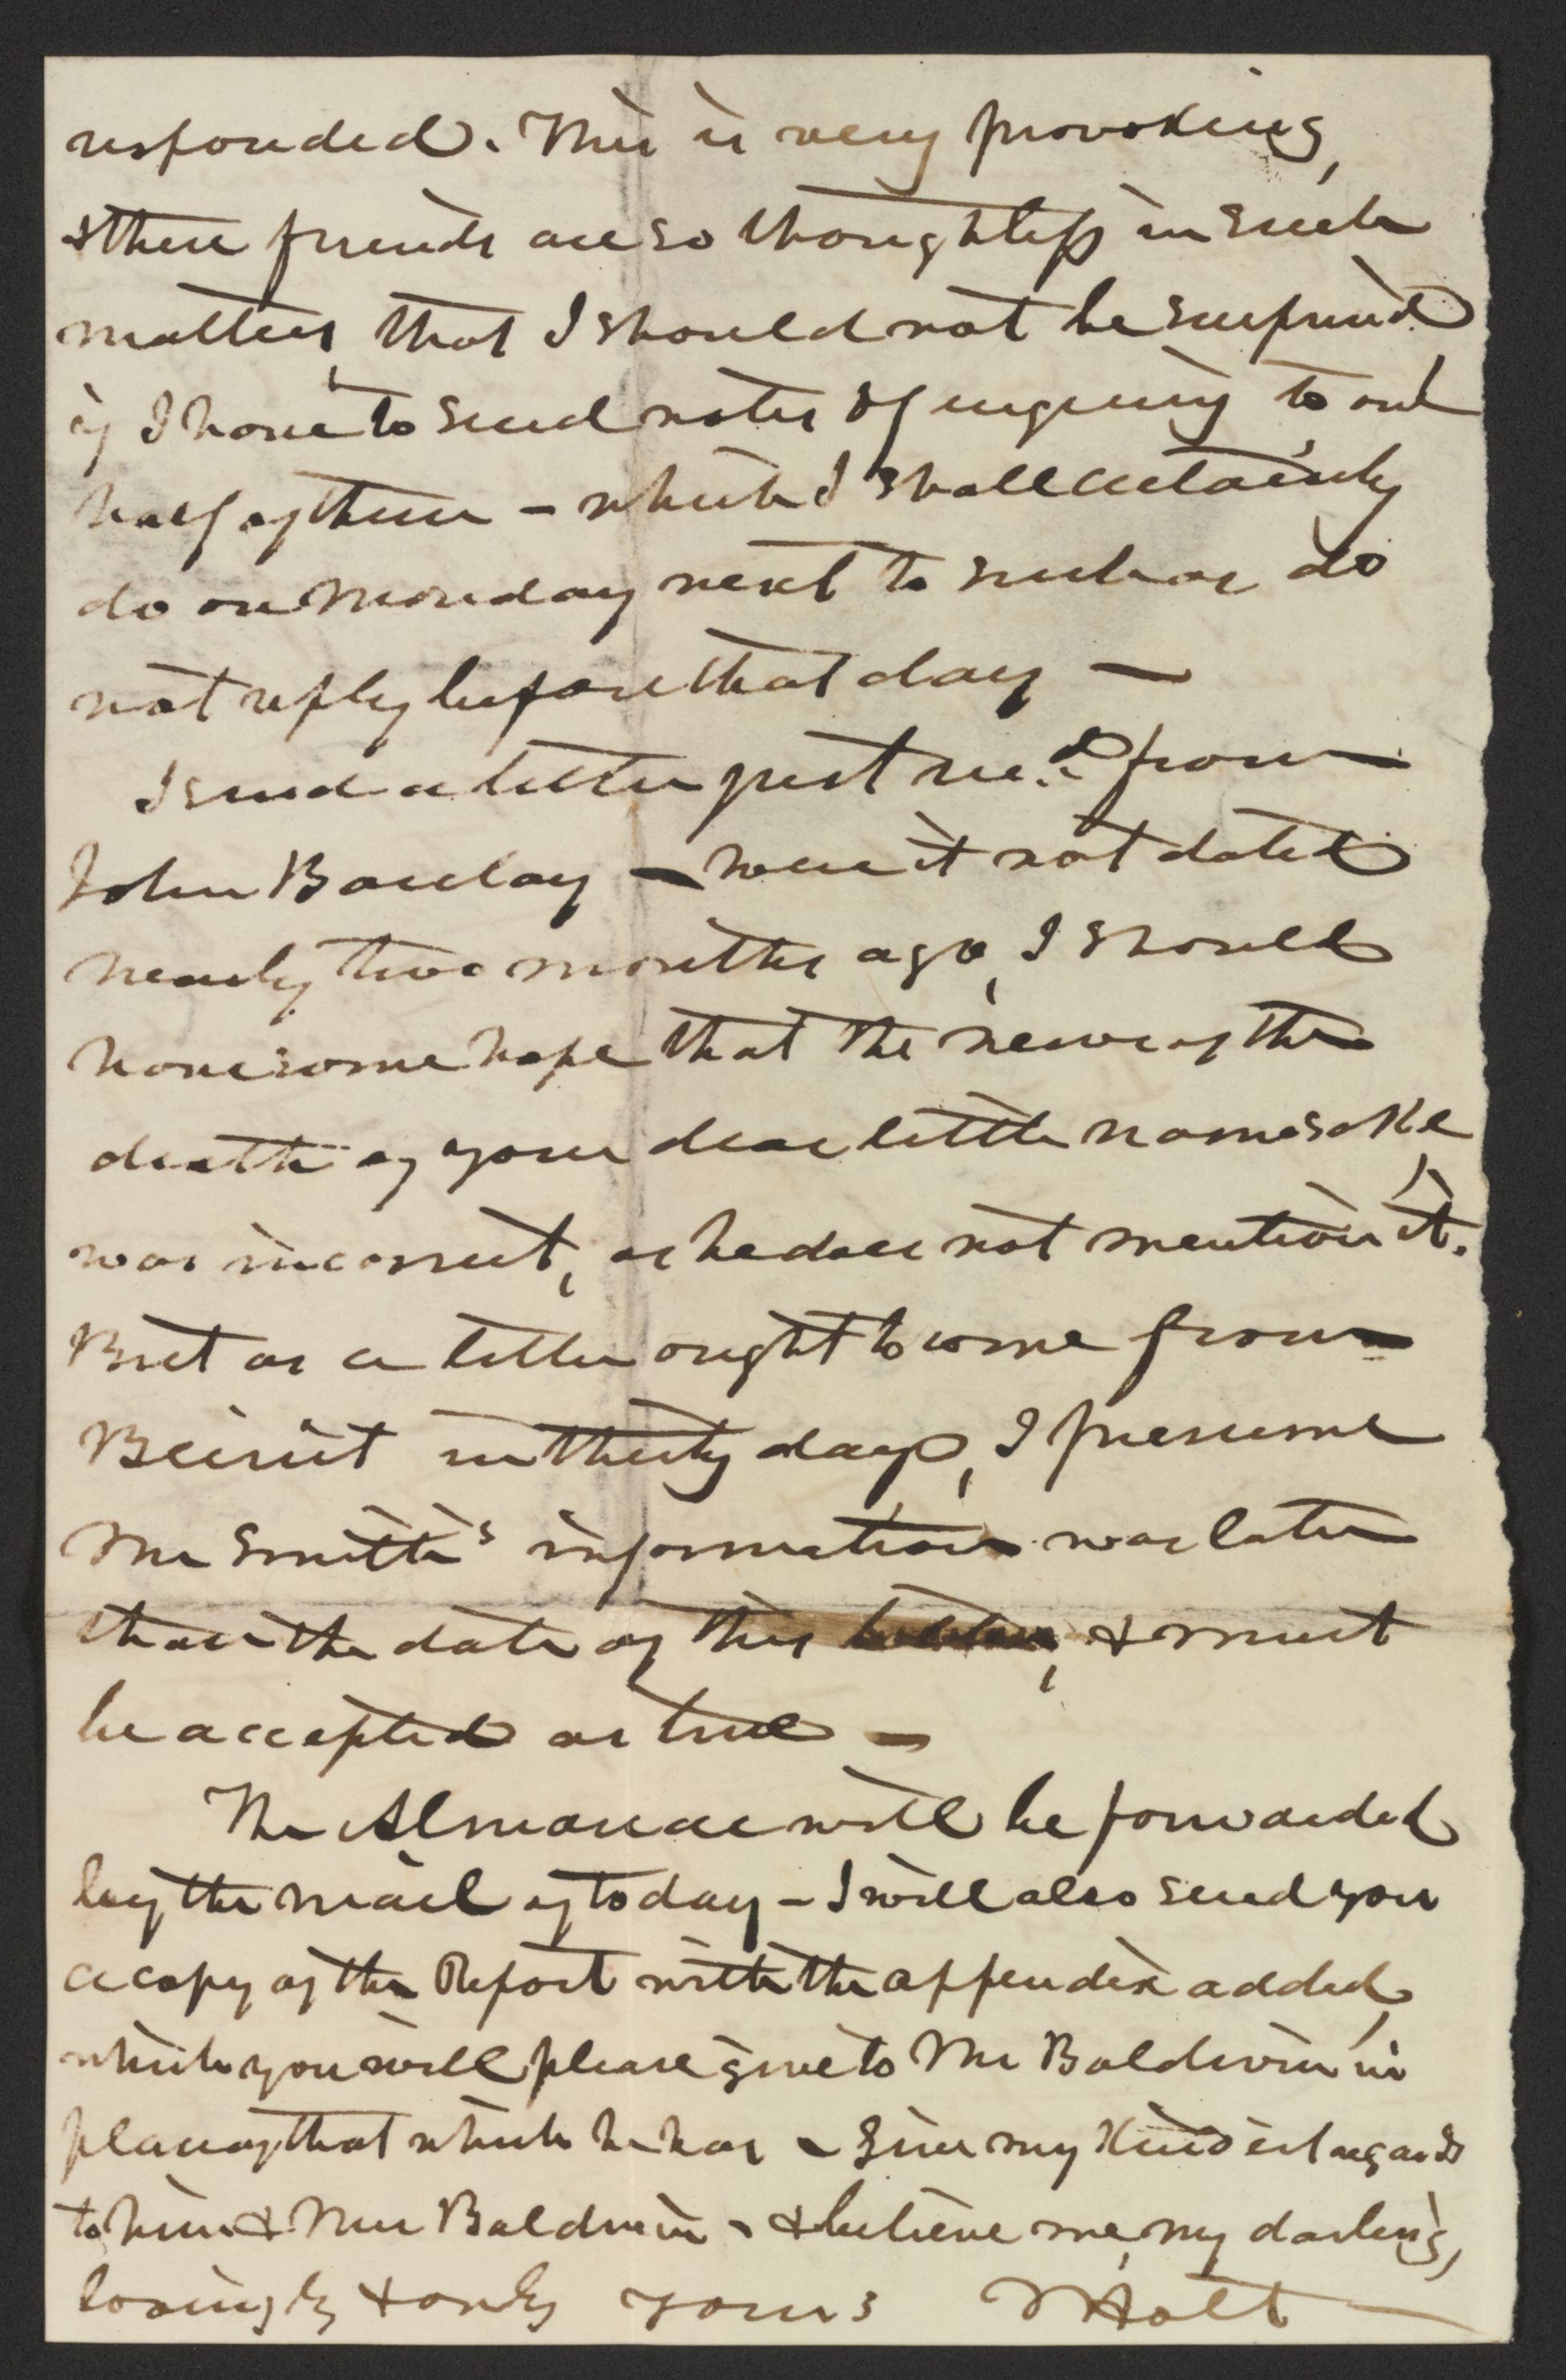 responded. This is very provoking,
& these friends are so thoughtless in such
matters, that I should not be surprised
if I have to send notes of inquiry to one
half of them – which I shall certainly
do on Monday next to such as do
not reply before that day —
I send a letter just rec.d from
John Barclay – were it not dated
nearly two months ago, I should
have some hope that the news of the
death of your dear little namesake
was incorrect, as he does not mention it.
But as a letter ought to come from
Beirut in thirty days, I presume
Mr Smith's information was later
than the date of this letter, & must
be accepted as true –
The Almanac will be forwarded
by the mail of to day – I will also send you
a copy of the Report with the appendix added,
which you will please give to Mr Baldwin in
place of that which he has – Give my kindest regards
to him & Mrs Baldwin – & believe me, my darling,
lovingly & only yours Holt —